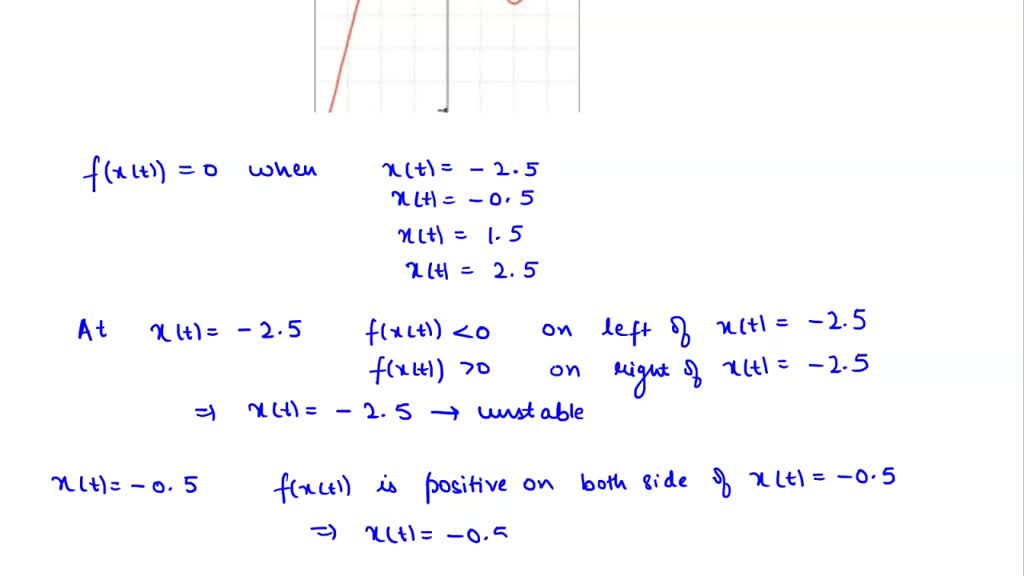 f(x(t)) = 0 when x(t) = - 2.5
x(t) = - 0.5
x(t) = 1.5
x(t) = 2.5
At x(t) = - 2.5 f(x(t)) < 0 on left of x(t) = - 2.5
f(x(t)) > 0 on right of x(t) = - 2.5
⇒ x(t) = - 2.5 → unstable
x(t) = - 0.5 f(x(t)) is positive on both side of x(t) = - 0.5
⇒ x(t) = - 0.5